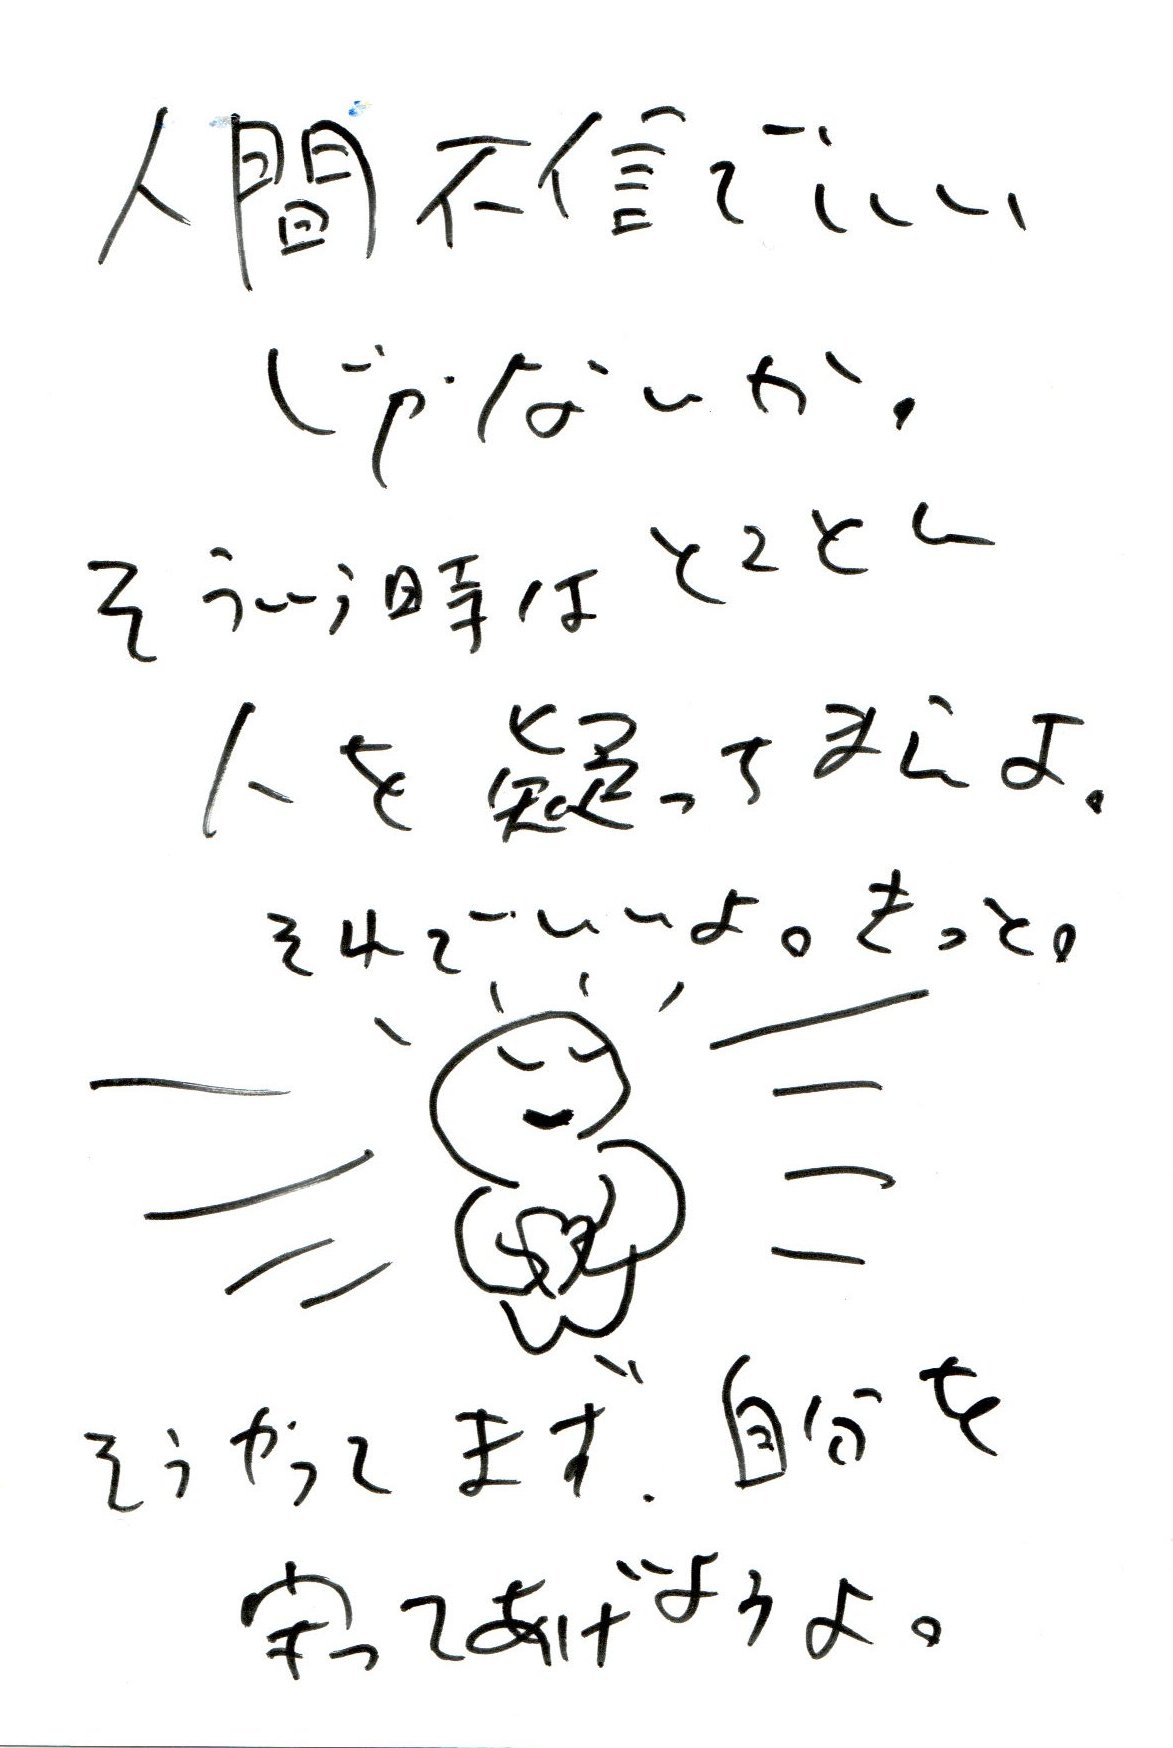 人間不信でいい
じゃないか。
そういう時はとことん
人を疑ってまえよ。
それでいいよ。きっと。
そうやってまず、自分を
守ってあげようよ。